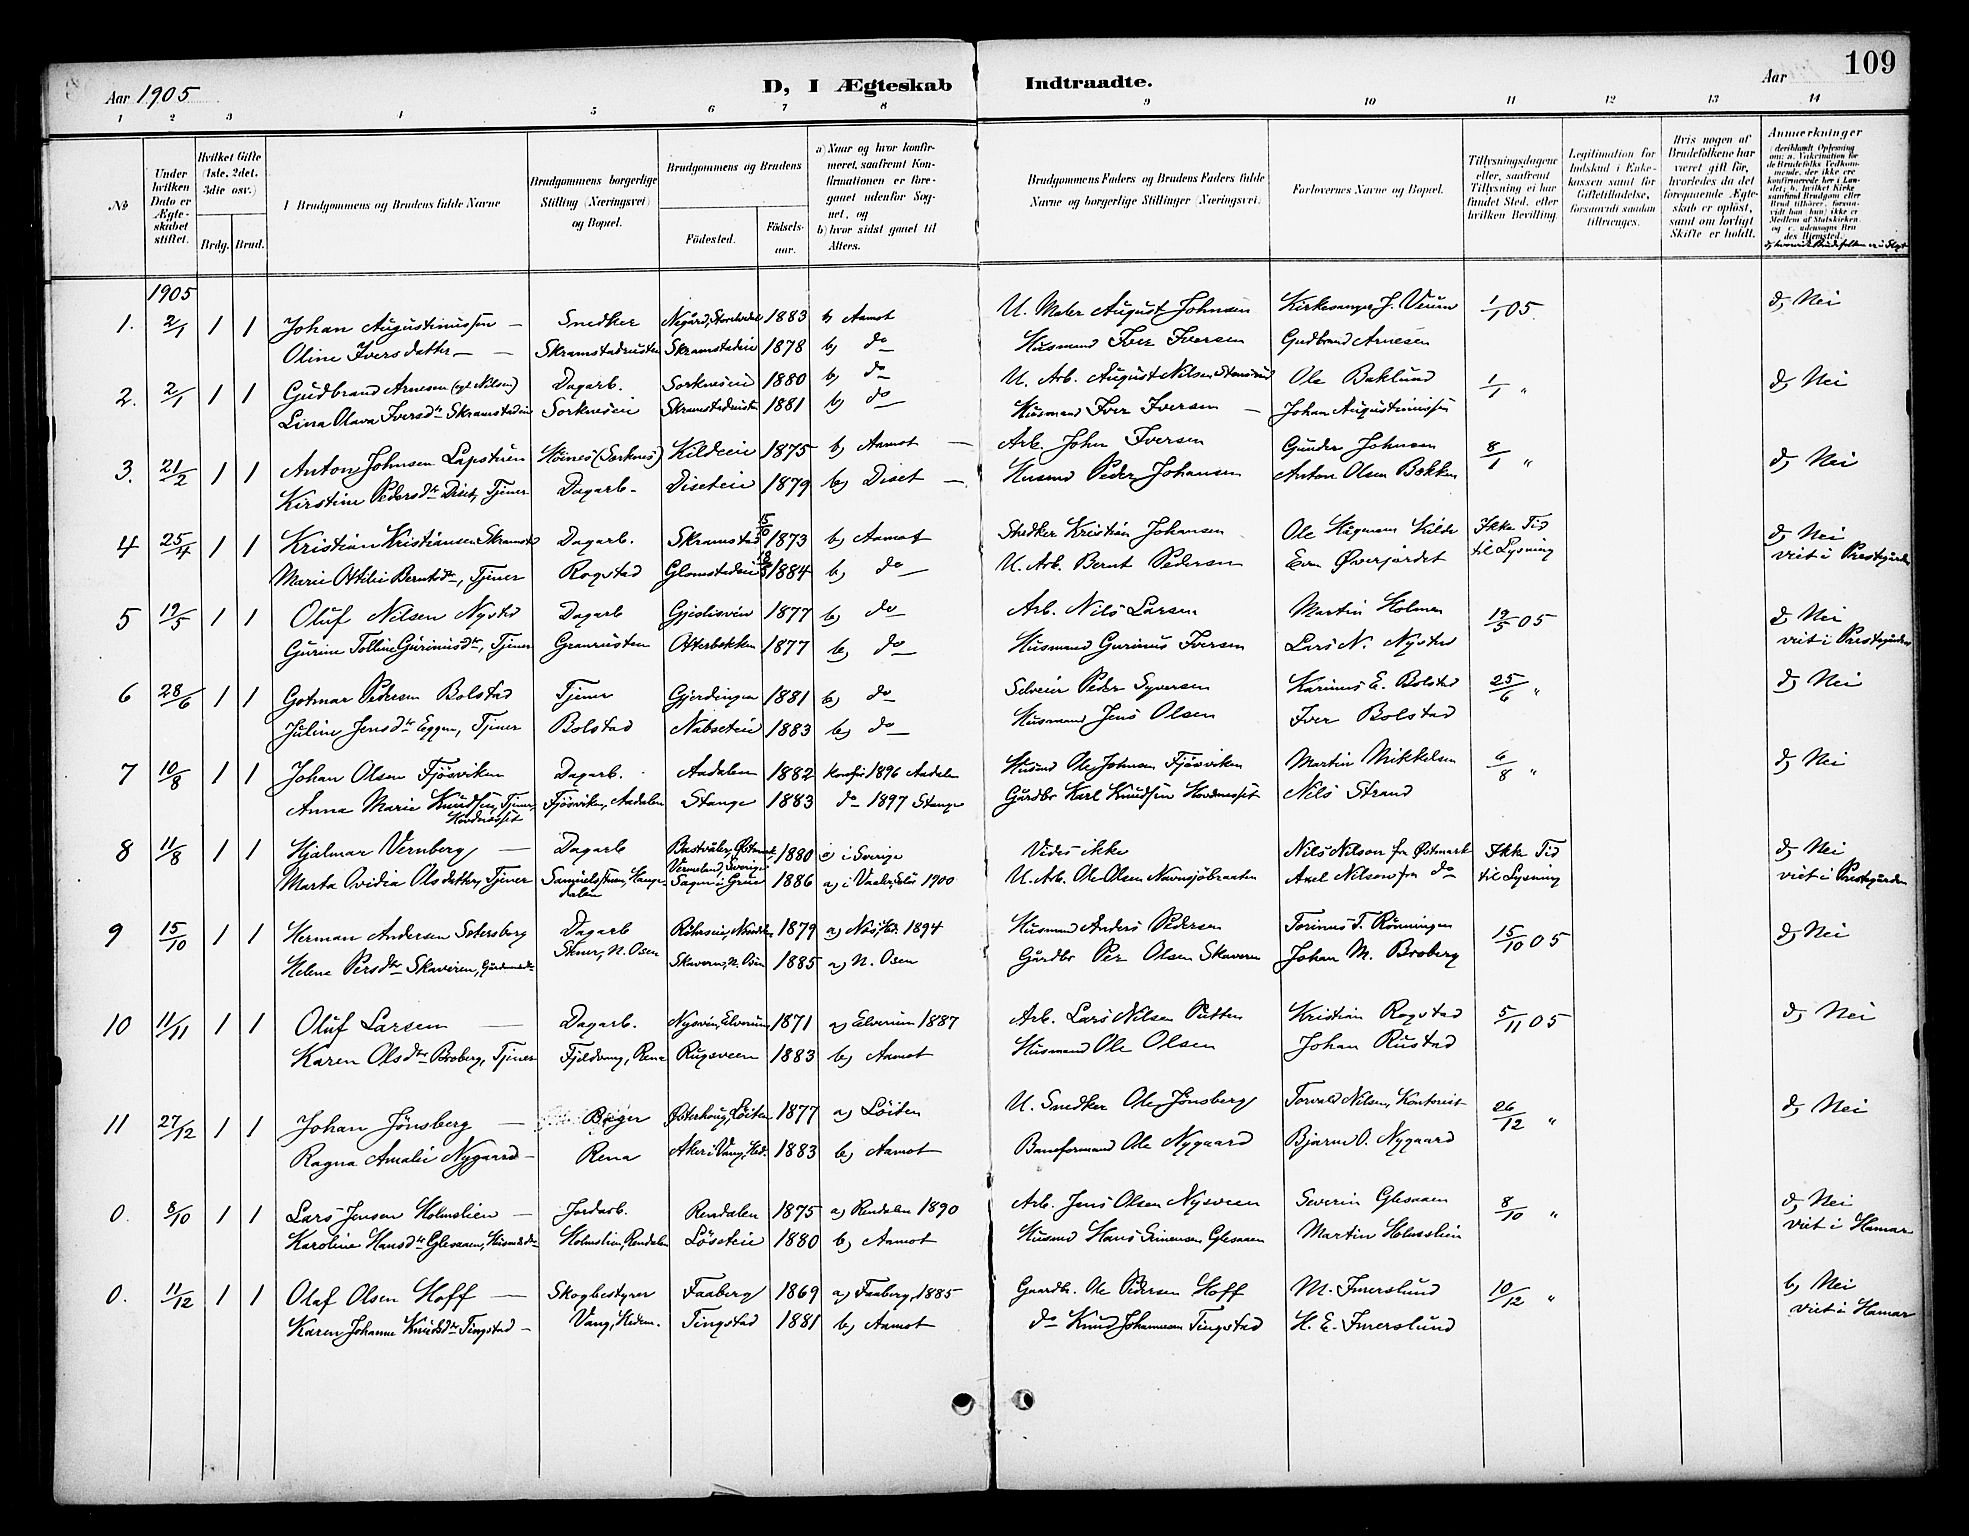 109
Aar 1905
D, I Ægteskab Indtraadte.
Aar
1 2 3 4 5 6 7 8 9 10 11 12 13 14
№
Under hvilken Dato er Ægteskabet stiftet.
Hvilket Gifte (1ste, 2det, 3die osv.)
Brdg. Brud.
I Brudgommens og Brudens fulde Navne
Brudgommens borgerlige Stilling (Næringsvei) og Bopæl.
Brudgommens og Brudens
Fødested. Fødselsaar.
a) Naar og hvor konfirmeret, saafremt Konfirmationen er foregaaet udenfor Sognet, og
b) hvor sidst gaaet til Alters.
Brudgommens Faders og Brudens Faders fulde Navne og borgerlige Stillinger (Næringsvei).
Forlovernes Navne og Bopæl.
Tillysningsdagene eller, saafremt Tillysning ei har fundet Sted, efter hvilken Bevilling.
Legitimation for Indskud i Enkekassen samt for Giftetilladelse, forsaavidt saadan tiltrænges.
Hvis nogen af Brudefolkene har været gift før, hvorledes da det foregaaende Ægteskab er opløst, samt om lovligt Skifte er holdt.
Anmærkninger (deriblandt Oplysning om: a. Vakcination for de Brudefolks Vedkommende, der ikke ere konfirmerede her i Landet; b. hvilket Kirkesamfund Brudgom eller Brud tilhører, forsaavidt han (hun) ikke er Medlem af Statskirken, og c. udensogns Brudes Hjemsted.
1905
1. 2/1 1 1 Johan Augustinussen — Snedker 1883 b) Aamot U. Maler August Johnsen Kirkesanger J. Veum 1/1 05. d) Nei
Oline Iversdatter — Skramstadeie 1878 b) do Husmand Iver Iversen Gudbrand Arnesen
2. 2/1 1 1 Gudbrand Arnesen (egt. Nilsen) Dagarb. Sorkneseie 1880 b) do U. Arb. August Nilsen Ole Baklund 1/1 " d) Nei
Lina Olava Iversdtr Skramstadeie Sorkneseie 1881 b) do Husmand Iver Iversen — Johan Augustinussen
3. 21/2 1 1 Anton Johnsen Løpsturen Høines (Sorknes) Kildeeie 1875 b) Aamot — Arb. John Iversen Gunder Johnsen 8/1 " d) Nei
Kirstine Pedersdtr Diset, Tjener Dagarb. Diseteie 1879 b) Diset — Husmd Peder Johansen Anton Olsen Bækken
4 25/4 1 1 Kristian Kristiansen Skramstad Dagarb. Skramstad 15/10 1873 b) Aamot Snedker Kristian Johansen Ole Hagmann Kilde Ikke Tid til Lysning d) Nei
Marie Ottilie Berntsdtr, Tjener Rogstad Glomstadeie 1884 b) do U. Arb. Bernt Pedersen Even Øverjordet viet i Prestegården
5 19/5 1 1 Oluf Nilsen Nysted Dagarb Gjeslisveen 1877 b) do Arb. Nils Larsen Martin Holmen 19/5 05 d) Nei
Gurine Tolline Gurinusdtr, Tjener Granrusten Atterbekken 1877 b) do Husmand Gurinus Iversen Lars N. Nysted viet i Prestegården
6 28/6 1 1 Gotmar Pedersen Bolstad Tjener Gjerdingen 1881 b) do Selveier Peder Syversen Karinus E. Bolstad 25/6 " d) Nei
Juline Jensdtr Eggen, Tjener Bolstad Nabseteie 1883 b) do Husmand Jens Olsen Iver Bolstad
7 10/8 1 1 Johan Olsen Fjøsviken Dagarb. Aadalen 1882 Konfir 1896 Aadalen Husmd Ole Johnsen Fjøsviken Martin Mikkelsen 6/8 " d) Nei
Anna Marie Knudsen, Tjener Fjøsviken, Aadalen Stange 1883 do 1897 Stange Gårdbr Karl Knudsen Hovdnesset Nils Strand
Hovdnesset
8 11/8 1 1 Hjalmar Vernberg — Dagarb Østmark, Vermeland, Sverige 1880 i Sverige Vides ikke Nils Nilson fra Østmark Ikke Tid til Lysning d) Nei
Marta Ovidia Olsdatter, Tjener Grue 1886 a) i Vaaler, Solør 1900 U. Arb. Ole Olsen Axel Nilsen fra do viet i Prestegården
9 15/10 1 1 Herman Andersen Setersberg Dagarb 1879 a) 1894 Husmand Anders Pedersen Torinus T. Rønningen 15/10 05 d) Nei
Helene Persdtr Skaveren, Gårdmandsdtr N. Osen Skaveren, N. Osen 1885 a) N. Osen Gårdbr Per Olsen Skaveren Johan M. Broberg
10 11/11 1 1 Oluf Larsen — Dagarb. Nysveen, Elverum 1871 a) Elverum 1887 Arb. Lars Nilsen Putten Kristian Rogstad 5/11 05 d) Nei
Karen Olsdtr Broberg, Tjener Fjeldvang, Rena Rugsveen 1883 b) Aamot Husmand Ole Olsen Johan Rustad
11 27/12 1 1 Johan Jönsberg — Bager Østerhaug, Löiten 1877 a) Löiten U. Snedker Ole Jönsberg Torvald Nilsen, Kontorist 26/12 " d) Nei
Ragna Amalie Nygaard — Rena Aker i Vang, Hed. 1883 b) Aamot Baneformand Ole Nygaard Bjarne O. Nygaard
0. 8/10 1 1 Lars Jensen Holmslien — Jordarb. Rendalen 1875 a) Rendalen 1890 Arb. Jens Olsen Nysveen Severin Glesaaen 8/10 " d) Nei
Karoline Hansdtr Glesaaen, Husmdsdtr Holmslien, Rendalen Löseteie 1880 b) Aamot Husmd Hans Simensen Glesaaen Martin Holmslien viet i Hamar
0. 11/12 1 1 Olaf Olsen Hoff — Skogbestyrer Faaberg 1869 a) Faaberg, 1885 Gaardbr. Ole Pedersen Hoff M. Imerslund 10/12 " b) Nei
Karen Johanne Knudsdtr Tingstad — Vang, Hedem. Tingstad 1881 b) Aamot do Knud Johannesen Tingstad H. E. Imerslund viet i Hamar